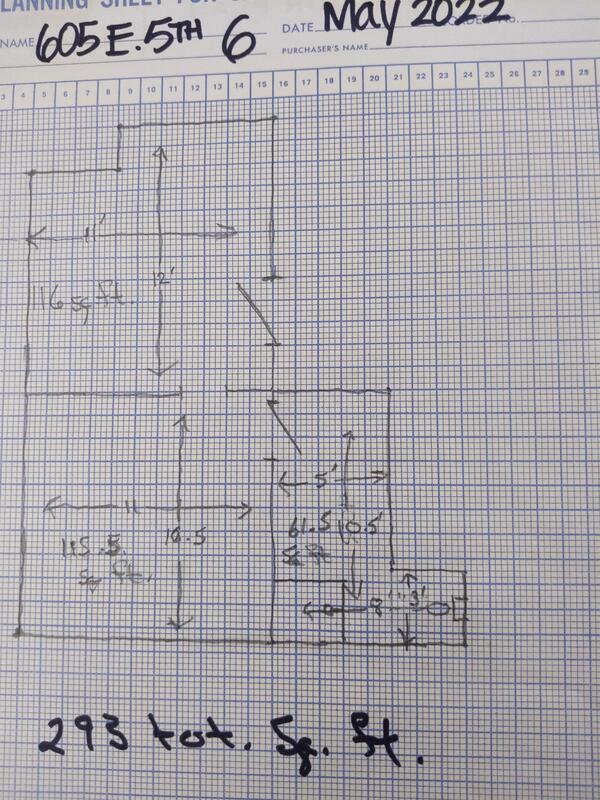 LANNING SHEET FOR
NAME 605 E. 5TH 6
DATE May 2022
PURCHASER'S NAME
3 4 5 6 7 8 9 10 11 12 13 14 15 16 17 18 19 20 21 22 23 24 25 26 27 28 29
11'
12'
116 sq ft.
5'
11
10.5
61.5 10.5'
sq ft
115.5
sq ft.
8' 3'
293 tot. Sq. ft.